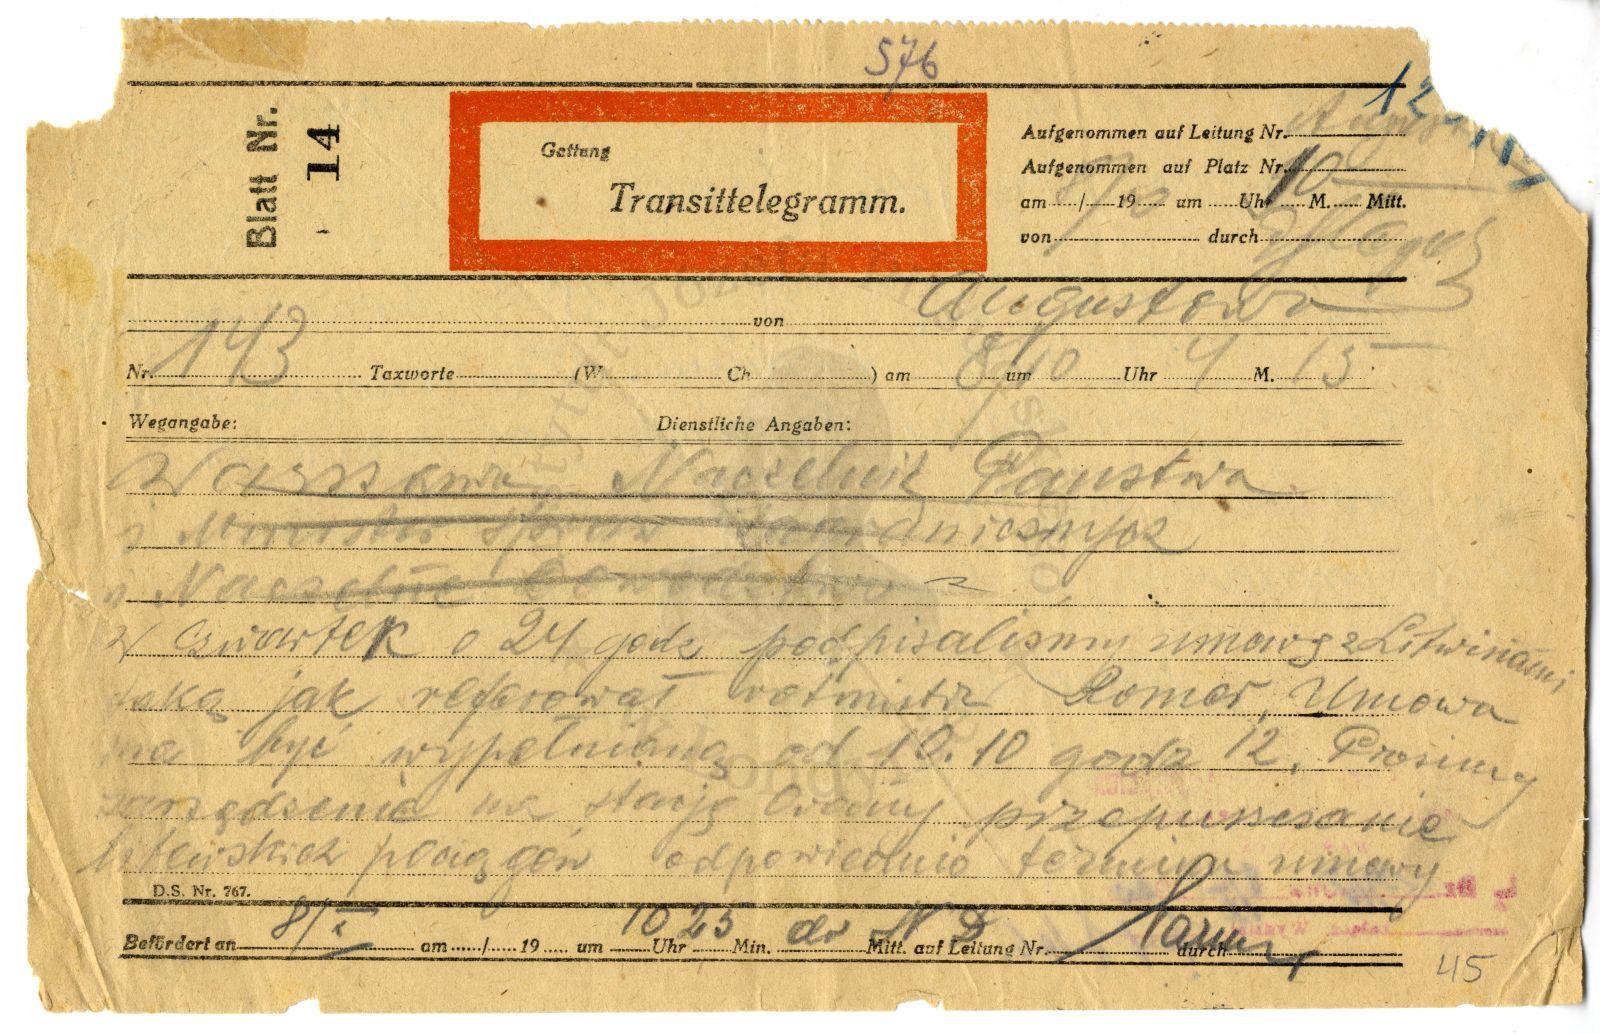 576
12
Blatt Nr. 14
Gattung
Transittelegramm.
Aufgenommen auf Leitung Nr.
Aufgenommen auf Platz Nr. 10
am / 19 um Uhr M. Mitt.
von durch
von Augustowa
Nr. 143 Taxworte (W Ch ) am 8/10 um Uhr 4 M. 15
Wegangabe: Dienstliche Angaben:
Warszawa Naczelnik Państwa
i Minister spraw zagranicznych
i Naczelne Dowództwo
W czwartek o 24 godz podpisaliśmy umowę z Litwinami
taką jak referował rotmistrz Romer, Umowa
ma być wypełnianą od 10.10 godz 12. Prosimy
zarządzenie na stację Orany przepuszczanie
litewskich pociągów odpowiednio termin umowy
D.S. Nr. 767.
Befördert an 8/X am / 19 um 10 Uhr 25 Min. do N D Mitt. auf Leitung Nr. durch
45